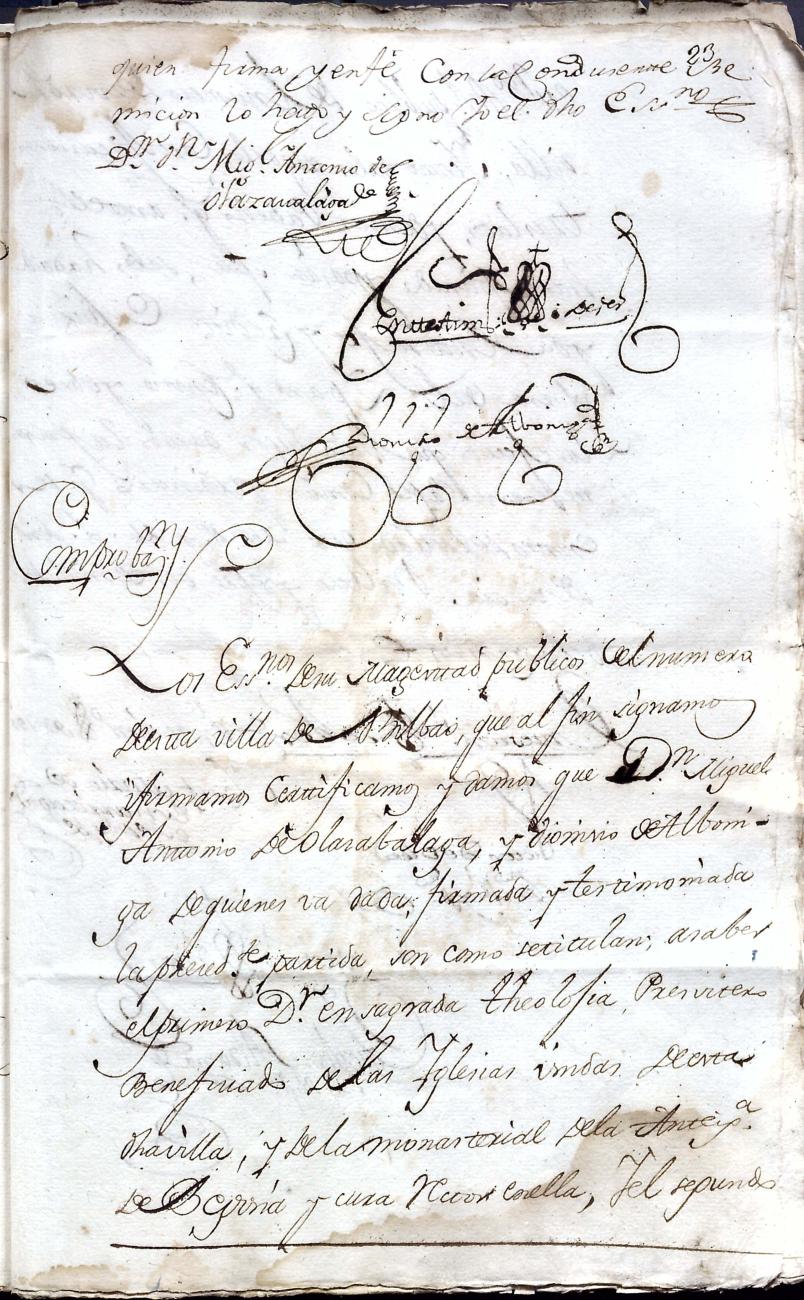 23
quien firma y enfé Con la Condusente Re
micion lo hago y signo Yo el dho Essno
Dr. Dn. Migl. Antonio de
Olazavalaga
En testim
de ver
Dionisio de Alboniga
Comprobazn
Los Essnos de su Magestad publicos del numero
de esta villa de Bilbao, que al fin signamos
ifirmamos Certificamos y damos que Dn. Miguel
Antonio de Olasabalaga, y Dionisio de Alboni-
ga de quienes va dada, firmada y testimoniada
la preced.te partida, son como se titulan, a saber
el primero Dr. en sagrada theolosia, Presvitero
Beneficiado de las Yglesias unidas de esta
dha villa, y de la monasterial de la Anteyga.
de Begoña y cura Rector en ella, Y el segundo